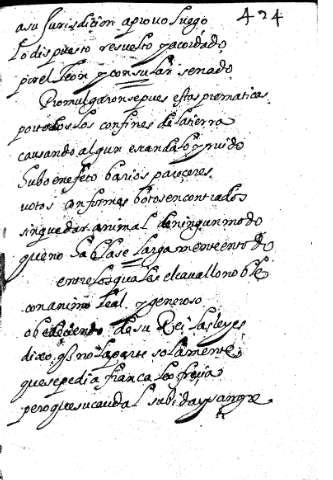 424
a su Jurisdicion aprouo luego
lo dispuesto resuelto y acordado
por el leon y consular senado
Promulgaronse pues estas prematicas
por todos los confines de la tierra
causando algun escandalo y ruido
hubo en efeto barios pareçeres
votos conformes botos encontrados
sin quedar animal de ningun modo
que no hablase largamente en to do
entre los quales el cauallo noble
con animo leal y generoso
obedeciendo de su Rei las leyes
dixo, q̃ no la parte solamente
que se pedia franca le ofreçia
pero que su caudal su bida y sangre